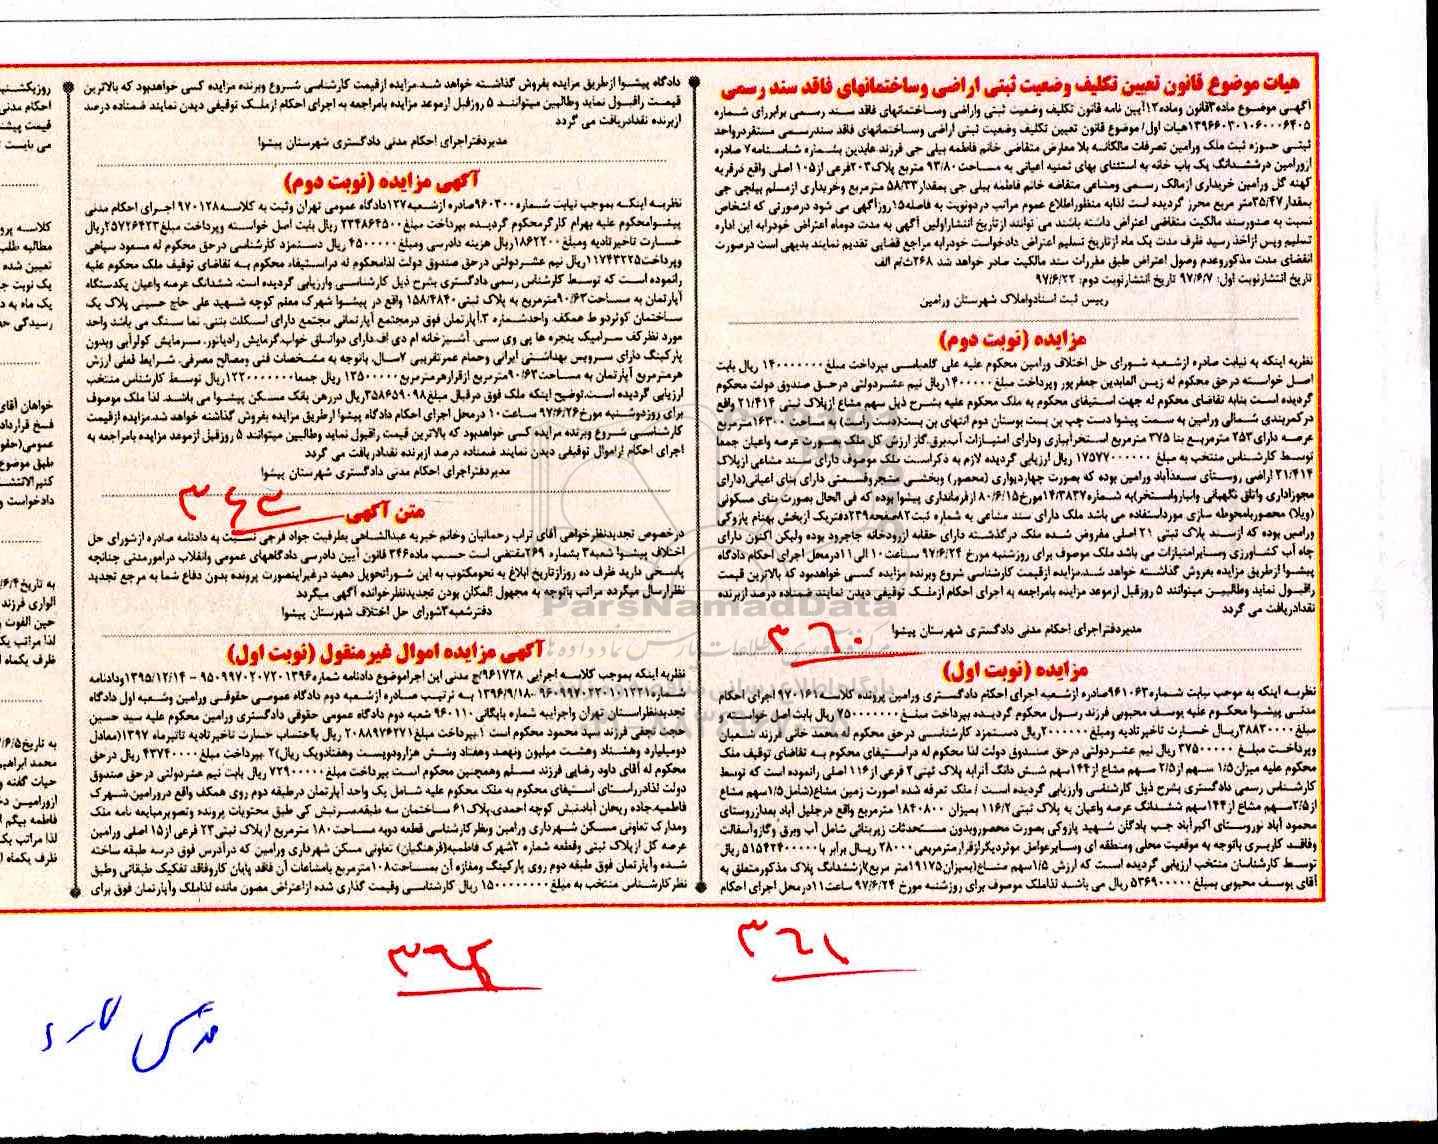 هیات موضوع قانون تعیین تکلیف وضعیت ثبتی اراضی وساختمانهای فاقد سند رسمی
آگهی موضوع ماده۳قانون وماده۱۳آیین نامه قانون تکلیف وضعیت ثبتی واراضی وساختمانهای فاقد سند رسمی برابررای شماره
۱۳۹۶۶۰۳۰۱۰۶۰۰۰۶۴۰۵هیات اول/ موضوع قانون تعیین تکلیف وضعیت ثبتی اراضی وساختمانهای فاقد سندرسمی مستقردرواحد
ثبتی حوزه ثبت ملک ورامین تصرفات مالکانه بلا معارض متقاضی خانم فاطمه بیلی جی فرزند عابدین بشماره شناسنامه۷ صادره
ازورامین درششدانگ یک باب خانه به استثنای بهای ثمنیه اعیانی به مساحت۹۳/۸۰ متربع پلاک۲۰۳فرعی از۱۰۵ اصلی واقع درقریه
کهنه گل ورامین خریداری ازمالک رسمی ومشاعی متقاضه خانم فاطمه بیلی جی بمقدار۵۸/۳۳ مترمربع وخریداری ازمسلم بیلچی جی
بمقدار۳۵/۴۷متر مربع محرز گردیده است لذابه منظوراطلاع عموم مراتب دردونوبت به فاصله۱۵روزآگهی می شود درصورتی که اشخاص
نسبت به صدورسند مالکیت متقاضی اعتراض داشته باشند می توانند ازتاریخ انتشاراولین آگهی به مدت دوماه اعتراض خودرابه این اداره
تسلیم وپس ازاخذ رسید ظرف مدت یک ماه ازتاریخ تسلیم اعتراض دادخواست خودرابه مراجع قضایی تقدیم نمایند بدیهی است درصورت
انقضای مدت مذکوروعدم وصول اعتراض طبق مقررات سند مالکیت صادر خواهد شد ۲۶۸ث/م الف
تاریخ انتشارنوبت اول: ۹۷/۶/۷ تاریخ انتشارنوبت دوم: ۹۷/۶/۲۲
رییس ثبت اسنادواملاک شهرستان ورامین
مزایده (نوبت دوم)
نظربه اینکه به نیابت صادره ازشعبه شورای حل اختلاف ورامین محکوم علیه علی گلعباسی بپرداخت مبلغ۱۴۰۰۰۰۰۰۰ ریال بابت
اصل خواسته درحق محکوم له زین العابدین جعفرپور وپرداخت مبلغ۱۴۰۰۰۰۰ریال نیم عشردولتی درحق صندوق دولت محکوم
گردیده است بنابه تقاضای محکوم له جهت استیفای محکوم به ملک محکوم علیه بشرح ذیل سهم مشاع ازپلاک ثبتی ۲۱/۴۱۴ واقع
درکمربندی شمالی ورامین به سمت پیشوا دست چپ بن بست بوستان دوم انتهای بن بست(دست راست) به مساحت ۱۶۳۰۰مترمربع
عرصه دارای۲۵۳ مترمربع بنا ۳۷۵ مترمربع استخرآبیاری ودارای امتیازات آب،برق،گاز ارزش کل ملک بصورت عرصه واعیان جمعا
توسط کارشناس منتخب به مبلغ ۱۷۵۷۷۰۰۰۰۰۰ ریال ارزیابی گردیده لازم به ذکراست ملک موصوف دارای سند مشاعی ازپلاک
۲۱/۴۱۴ اراضی روستای سعدآباد ورامین بوده که بصورت چهاردیواری (محصور) وبخشی مشجروقسمتی دارای بنای اعیانی(دارای
مجوزاداری واتاق نگهبانی وانباررواستخر)به شماره۱۴/۳۸۳۷مورخ۸۰/۶/۱۵ ازفرمانداری پیشوا بوده که فی الحال بصورت بنای مسکونی
(ویلا) محصوربامحوطه سازی مورداستفاده می باشد ملک دارای سند مشاعی به شماره ثبت۸۲صفحه۲۳۹دفتریک ازبخش بهنام پازوکی
ورامین بوده که ازسند پلاک ثبتی ۲۱ اصلی مفروض شده ملک درگذشته دارای حقابه ازرودخانه جاجرود بوده ولیکن اکنون دارای
چاه آب کشاورزی وسایرامتیازات می باشد ملک موصوف برای روزشنبه مورخ ۹۷/۶/۲۴ ساعت۱۰ الی ۱۱درمحل اجرای احکام دادگاه
پیشوا ازطریق مزایده بفروش گذاشته خواهد شد.مزایده ازقیمت کارشناسی شروع وبرنده مزایده کسی خواهدبود که بالاترین قیمت
راقبول نماید وطالبین میتوانند ۵ روزقبل ازموعد مزایده بامراجعه به اجرای احکام ازملک توقیفی دیدن نمایند ضمناده درصد ازبرنده
نقدادریافت می گردد
مدیردفتراجرای احکام مدنی دادگستری شهرستان پیشوا
۳۶۰
مزایده (نوبت اول)
نظربه اینکه به موجب نیابت شماره۹۶۱۰۶۳صادره ازشعبه اجرای احکام دادگستری ورامین پرونده کلاسه۹۷۰۱۶۱ اجرای احکام
مدنی پیشوا محکوم علیه یوسف محبوبی فرزند رسول محکوم گردیده بپرداخت مبلغ۷۵۰۰۰۰۰۰۰ ریال بابت اصل خواسته و
مبلغ۳۸۸۳۰۰۰۰ریال خسارت تاخیرتادیه ومبلغ۲۰۰۰۰۰۰ریال دستمزد کارشناسی درحق محکوم له محمد خانی فرزند شعبان
وپرداخت مبلغ ۳۷۵۰۰۰۰۰ ریال نیم عشردولتی درحق صندوق دولت لذا محکوم له دراستیفای محکوم به تقاضای توقیف ملک
محکوم علیه میزان۱/۵ سهم از۲/۵ سهم مشاع از۱۴۴سهم شش دانگ آنرابه پلاک ثبتی۲ فرعی از۱۱۶ اصلی رانموده است که توسط
کارشناس رسمی دادگستری بشرح ذیل کارشنفسی وارزیابی گردیده است / ملک تعرفه شده اصورت زمین مشاع(شامل۱/۵سهم مشاع
از۲/۵سهم مشاع از۱۴۴سهم ششدانگ عرصه واعیان به پلاک ثبتی ۱۱۶/۲ بمیزان ۱۸۴۰۸۰۰ مترمربع واقع درجلیل آباد بعدازروستای
محمود آباد نوروستای اکبرآباد جنب پادگان شهید پازوکی بصورت محصوروبدون مستحدثات زیربنائی شامل آب وبرق وگازوآسفالت
وفاقد کاربری باتوجه به موقعیت محلی ومنطقه ای وسایرعوامل موثردیگرازقرارمترمربعی۲۸۰۰۰ ریال برابر با۵۱۵۴۲۴۰۰۰۰۰ ریال
توسط کارشناسان منتخب ارزیابی گردیده است که ارزش ۱/۵سهم مشاع(بمیزان۱۹۱۷۵متر مربع)ازششدانگ پلاک مذکورمتعلق به
آقای یوسف محبوبی بمبلغ۵۳۶۹۰۰۰۰۰ ریال می باشد لذاملک موصوف برای روزشنبه مورخ ۹۷/۶/۲۴ ساعت۱۱درمحل اجرای احکام
۳۶۱
دادگاه پیشوا ازطریق مزایده بفروش گذاشته خواهد شد.مزایده ازقیمت کارشناسی شروع وبرنده مزایده کسی خواهدبود که بالاترین
قیمت راقبول نماید وطالبین میتوانند ۵ روزقبل ازموعد مزایده بامراجعه به اجرای احکام ازملک توقیفی دیدن نمایند ضمناده درصد
ازبرنده نقدادریافت می گردد
مدیردفتراجرای احکام مدنی دادگستری شهرستان پیشوا
آگهی مزایده (نوبت دوم)
نظربه اینکه بموجب نیابت شماره۹۶۰۳۰۰صادره ازشعبه۱۲۷دادگاه عمومی تهران وثبت به کلاسه۹۷۰۱۲۸ اجرای احکام مدنی
پیشوامحکوم علیه بهرام کارگرمحکوم گردیده بپرداخت مبلغ۲۳۴۸۶۴۵۰۰ ریال بابت اصل خواسته وپرداخت مبلغ۲۵۷۲۶۴۲۳ریال
خسارت تاخیرتادیه ومبلغ۱۸۶۲۲۰۰ریال هزینه دادرسی ومبلغ۴۵۰۰۰۰۰ ریال دستمزد کارشناسی درحق محکوم له مسعود سپاهی
وپرداخت۱۱۷۴۳۲۲۵ریال نیم عشردولتی درحق صندوق دولت لذامحکوم له دراستیفاء محکوم به تقاضای توقیف ملک محکوم علیه
رانموده است که توسط کارشناس رسمی دادگستری بشرح ذیل کارشناسی وارزیابی گردیده است. ششدانگ عرصه واعیان یکدستگاه
آپارتمان به مساحت۹۰/۶۳مترمربع به پلاک ثبتی ۱۵۸/۴۸۴۰ واقع در پیشوا شهرک معلم کوچه شهید علی حاج حسینی پلاک یک
ساختمان کوثردو ط همکف. واحدشماره ۳.آپارتمان فوق درمجتمع آپارتمانی مجتمع دارای اسکلت بتنی. نما سنگ می باشد واحد
مورد نظرکف سرامیک پنجره ها پی وی سی. آشپزخانه ام دی اف.دارای دواتاق خواب.گرمایش رادیاتور. سرمایش کولرآبی وبدون
پارکینگ دارای سرویس بهداشتی ایرانی وحمام عمرتقریبی ۷سال. باتوجه به مشخصات فنی ومصالح مصرفی. شرایط فعلی ارزش
هرمترمربع آپارتمان به مساحت۹۰/۶۳مترمربع ازقرارهرمترمربع۱۳۵۰۰۰۰۰ ریال جمعا۱۲۲۰۰۰۰۰۰۰ریال توسط کارشناس منتخب
ارزیابی گردیده است.توضیح اینکه ملک فوق درقبال مبلغ۳۵۸۶۵۹۰۹۸ریال دررهن بانک مسکن پیشوا می باشد. لذا ملک موصوف
برای روزدوشنبه مورخ۹۷/۶/۲۶ ساعت۱۰ درمحل اجرای احکام دادگاه پیشوا ازطریق مزایده بفروش گذاشته خواهد شد.مزایده ازقیمت
کارشناسی شروع وبرنده مزایده کسی خواهدبود که بالاترین قیمت راقبول نماید وطالبین میتوانند ۵ روزقبل ازموعد مزایده بامراجعه به
اجرای احکام ازاموال توقیفی دیدن نمایند ضمناده درصد ازبرنده نقدادریافت می گردد
مدیردفتراجرای احکام مدنی دادگستری شهرستان پیشوا
متن آگهی
۳۶۳
درخصوص تجدیدنظرخواهی آقای تراب رحمانیان وخانم خیریه عبدالشاهی بطرفیت جواد فرجی نسبت به دادنامه صادره ازشورای حل
اختلاف پیشوا شعبه۳ بشماره ۲۶۹مقتضی است حسب ماده۳۴۶ قانون آیین دادرسی دادگاههای عمومی وانقلاب درامورمدنی چنانچه
پاسخی دارید ظرف ده روزازتاریخ ابلاغ به نحومکتوب به این شوراتحویل دهید درغیراینصورت پرونده بدون دفاع شما به مرجع تجدید
نظرارسال میگردد مراتب باتوجه به مجهول المکان بودن تجدیدنظرخوانده آگهی میگردد
دفترشعبه۳شورای حل اختلاف شهرستان پیشوا
آگهی مزایده اموال غیرمنقول (نوبت اول)
نظربه اینکه بموجب کلاسه اجرایی ۹۶۱۷۲۸/ج مدنی این اجراموضوع دادنامه شماره۹۵۰۹۹۷۰۲۰۷۲۰۱۳۹۶ – ۱۳۹۵/۱۲/۱۴ودادنامه
شماره۹۶۰۹۹۷۰۲۲۰۱۰۱۲۲۱ -۱۳۹۶/۹/۱۸ به ترتیب صادره ازشعبه دوم دادگاه عمومی حقوقی ورامین وشعبه اول دادگاه
تجدیدنظراستان تهران واجراییه شماره بایگانی۹۶۰۱۱۰ شعبه دوم دادگاه عمومی حقوقی دادگستری ورامین محکوم علیه سید حسین
حجت نجفی فرزند سید محمود محکوم است ۱.بپرداخت مبلغ۲۰۸۸۹۷۶۲۷۱ ریال بااحتساب خسارت تاخیرتادیه تاتیرماه ۱۳۹۷(معادل
دومیلیارد وهشتاد وهشت میلیون ونهصد وهفتاد وشش هزارودویست وهفتادویک ریال)۲. بپرداخت مبلغ۴۳۷۴۰۰۰۰ ریال درحق
محکوم له آقای داود رضایی فرزند مسلم وهمچنین محکوم است بپرداخت مبلغ۷۲۹۰۰۰۰۰ ریال بابت نیم عشردولتی درحق صندوق
دولت لذادرراستای استیفای محکوم به ملک محکوم علیه شامل یک واحد آپارتمان درطبقه دوم روی همکف واقع درورامین.شهرک
فاطمیه.جاده ریحان آباد.نبش کوچه احمدی.پلاک۶۱ ساختمان سه طبقه.سرنبش کی طبق محتویات پرونده وتصویرمبایعه نامه ملک
ومدارک تعاونی مسکن شهرداری ورامین ونظرکارشناسی قطعه دوبه مساحت۱۸۰ مترمربع ازپلاک ثبتی۲۳ فرعی از۱۵ اصلی ورامین
عرصه کل ازپلاک ثبتی وقطعه شماره ۲شهرک فاطمیه(فرهنگیان) تعاونی مسکن شهرداری ورامین که درآدرس فوق درسه طبقه ساخته
شده وآپارتمان فوق طبقه دوم روی پارکینگ ومغازه آن بمساحت۱۰۸مترمربع بامشاعات آن فاقد پایان کاروفاقد تفکیک طبقاتی وطبق
نظرکارشناس منتخب به مبلغ۱۵۰۰۰۰۰۰۰۰ ریال کارشناسی وقیمت گذاری شده ازاعتراض مصون مانده لذاملک وآپارتمان فوق برای
۳۶۴
ParsNamadData
روزیکشنبه
احکام مدنی
قیمت پیشنه
می بایست
کلاسه پرو
مطالبه طلب
تعیین شده
یک نوبت ج
یک ماه به د
رسیدگی حض
خواهان آقای
فسخ قرارداد
عمومی(حقو
طبق موضوع
کثیرالانتشا
دادخواست و
به تاریخ۶/۴/
الواری فرزند
حین الفوت
لذا مراتب یک
ظرف یکماه ا
به تاریخ۶/۵/
محمد ابراهیم
حیات گفته و
ازورامین د
فاطمه بیگم
لذا مراتب یک
ظرف یکماه ا